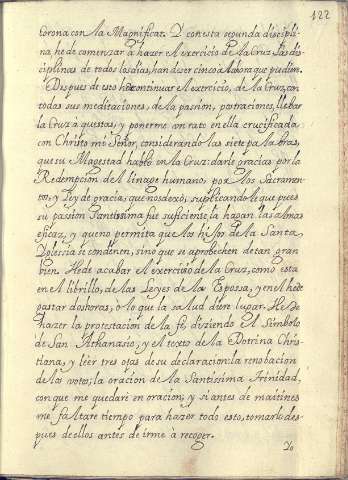 122
Corona con la Magnificat. Y con esta segunda discipli-
na, he de comenzar a hazer el exercicio de la Cruz. Las dis-
ciplinas de todos los dias, han de ser cinco a la hora que pudiere.
Despues de esto he de continuar el exercicio, de la Cruz, con
todas sus meditaciones, de la passion, postraciones, llebar
la Cruz a questas, y ponerme un rato en ella crucificada
con Christo mi Señor, considerando las siete palabras,
que su Magestad hablò en la Cruz: darle gracias por la
Redempcion del linage humano, por los Sacramen-
tos, y Ley de gracia, que nos dexò, suplicandole que pues
su passion Santissima fue suficiente la hagan las almas
eficaz, y que no permita que los hijos de la Santa
Yglessia se condenen, sino que se aprobechen de tan gran
bien. He de acabar el exercicio de la Cruz, como esta
en el librillo, de las Leyes de la Esposa, y en el he de
gastar dos horas, o lo que la salud diere lugar. He de
hazer la protestacion de la fè, diziendo el Simbolo
de San Athanasio, y el texto de la Dotrina Chris-
tiana, y leer tres ojas de su declaracion: la renobacion
de los votos, la oracion de la Santissima Trinidad,
con que me quedarè en oracion, y si antes de maitines
me faltare tiempo para hazer todo esto, tomarlo des-
pues de ellos antes de irme a recoger.
Yo